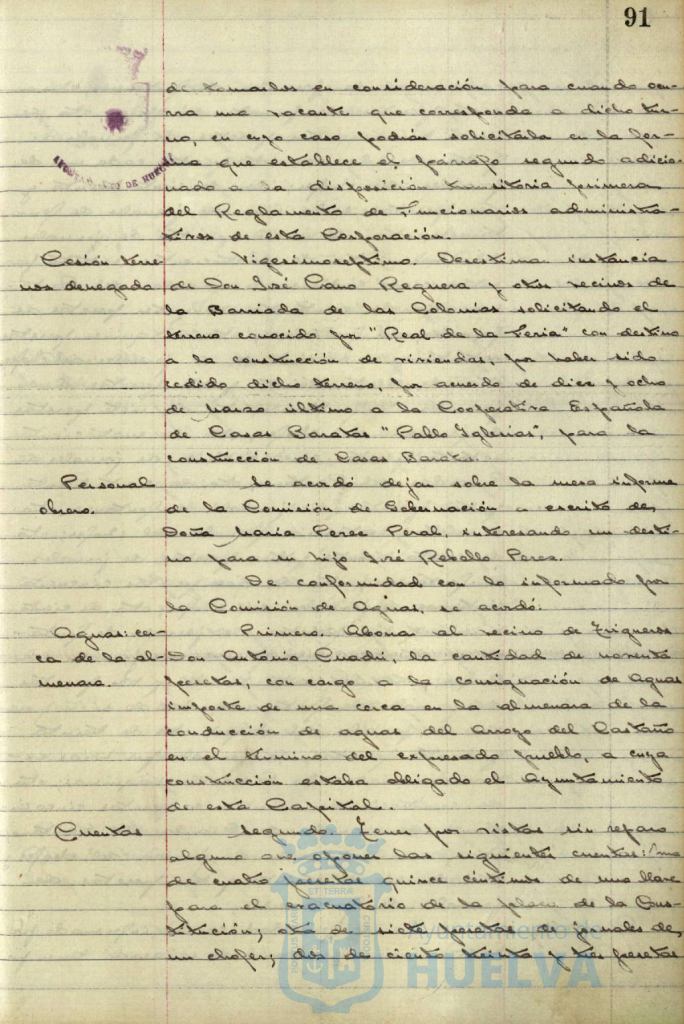 91
de tomarlos en consideración para cuando ocu-
rra una vacante que corresponda a dicho tur-
no, en cuyo caso podrán solicitarla en la for-
ma que establece el párrafo segundo adicio-
nado a la disposición transitoria primera
del Reglamento de Funcionarios administra-
tivos de esta Corporación.
Cesión terre-
nos denegada
Vigesimoseptimo. Desestimar instancia
de Don José Cano Reguera y otros vecinos de
la Barriada de las Colonias solicitando el
terreno conocido por "Real de la Feria" con destino
a la construcción de viviendas, por haber sido
cedido dicho terreno, por acuerdo de diez y ocho
de Marzo último a la Cooperativa Española
de Casas Baratas "Pablo Iglesias", para la
construcción de Casas Baratas.
Personal
obrero.
Se acordó dejar sobre la mesa informe
de la Comisión de Gobernación a escrito de
Doña María Perez Peral, interesando un desti-
no para su hijo José Rebollo Perez.
De conformidad con lo informado por
la Comisión de Aguas, se acordó:
Aguas: cer-
ca de la al-
menara.
Primero. Abonar al vecino de Trigueros
Don Antonio Cuadri, la cantidad de noventa
pesetas, con cargo a la consignación de Aguas
importe de una cerca en la almenara de la
conducción de aguas del Arroyo del Castaño
en el termino del expresado pueblo, a cuya
construcción estaba obligado el Ayuntamiento
de esta Capital.
Cuentas
Segundo. Tener por vistas sin reparo
alguno que oponer las siguientes cuentas: Una
de cuatro pesetas quince céntimos de una llave
para el evacuatorio de la plaza de la Cons-
titución; otra de siete pesetas de jornales de
un chofer; dos de ciento treinta y tres pesetas
AYUNTAMIENTO DE HUELVA
Ayuntamiento
HUELVA